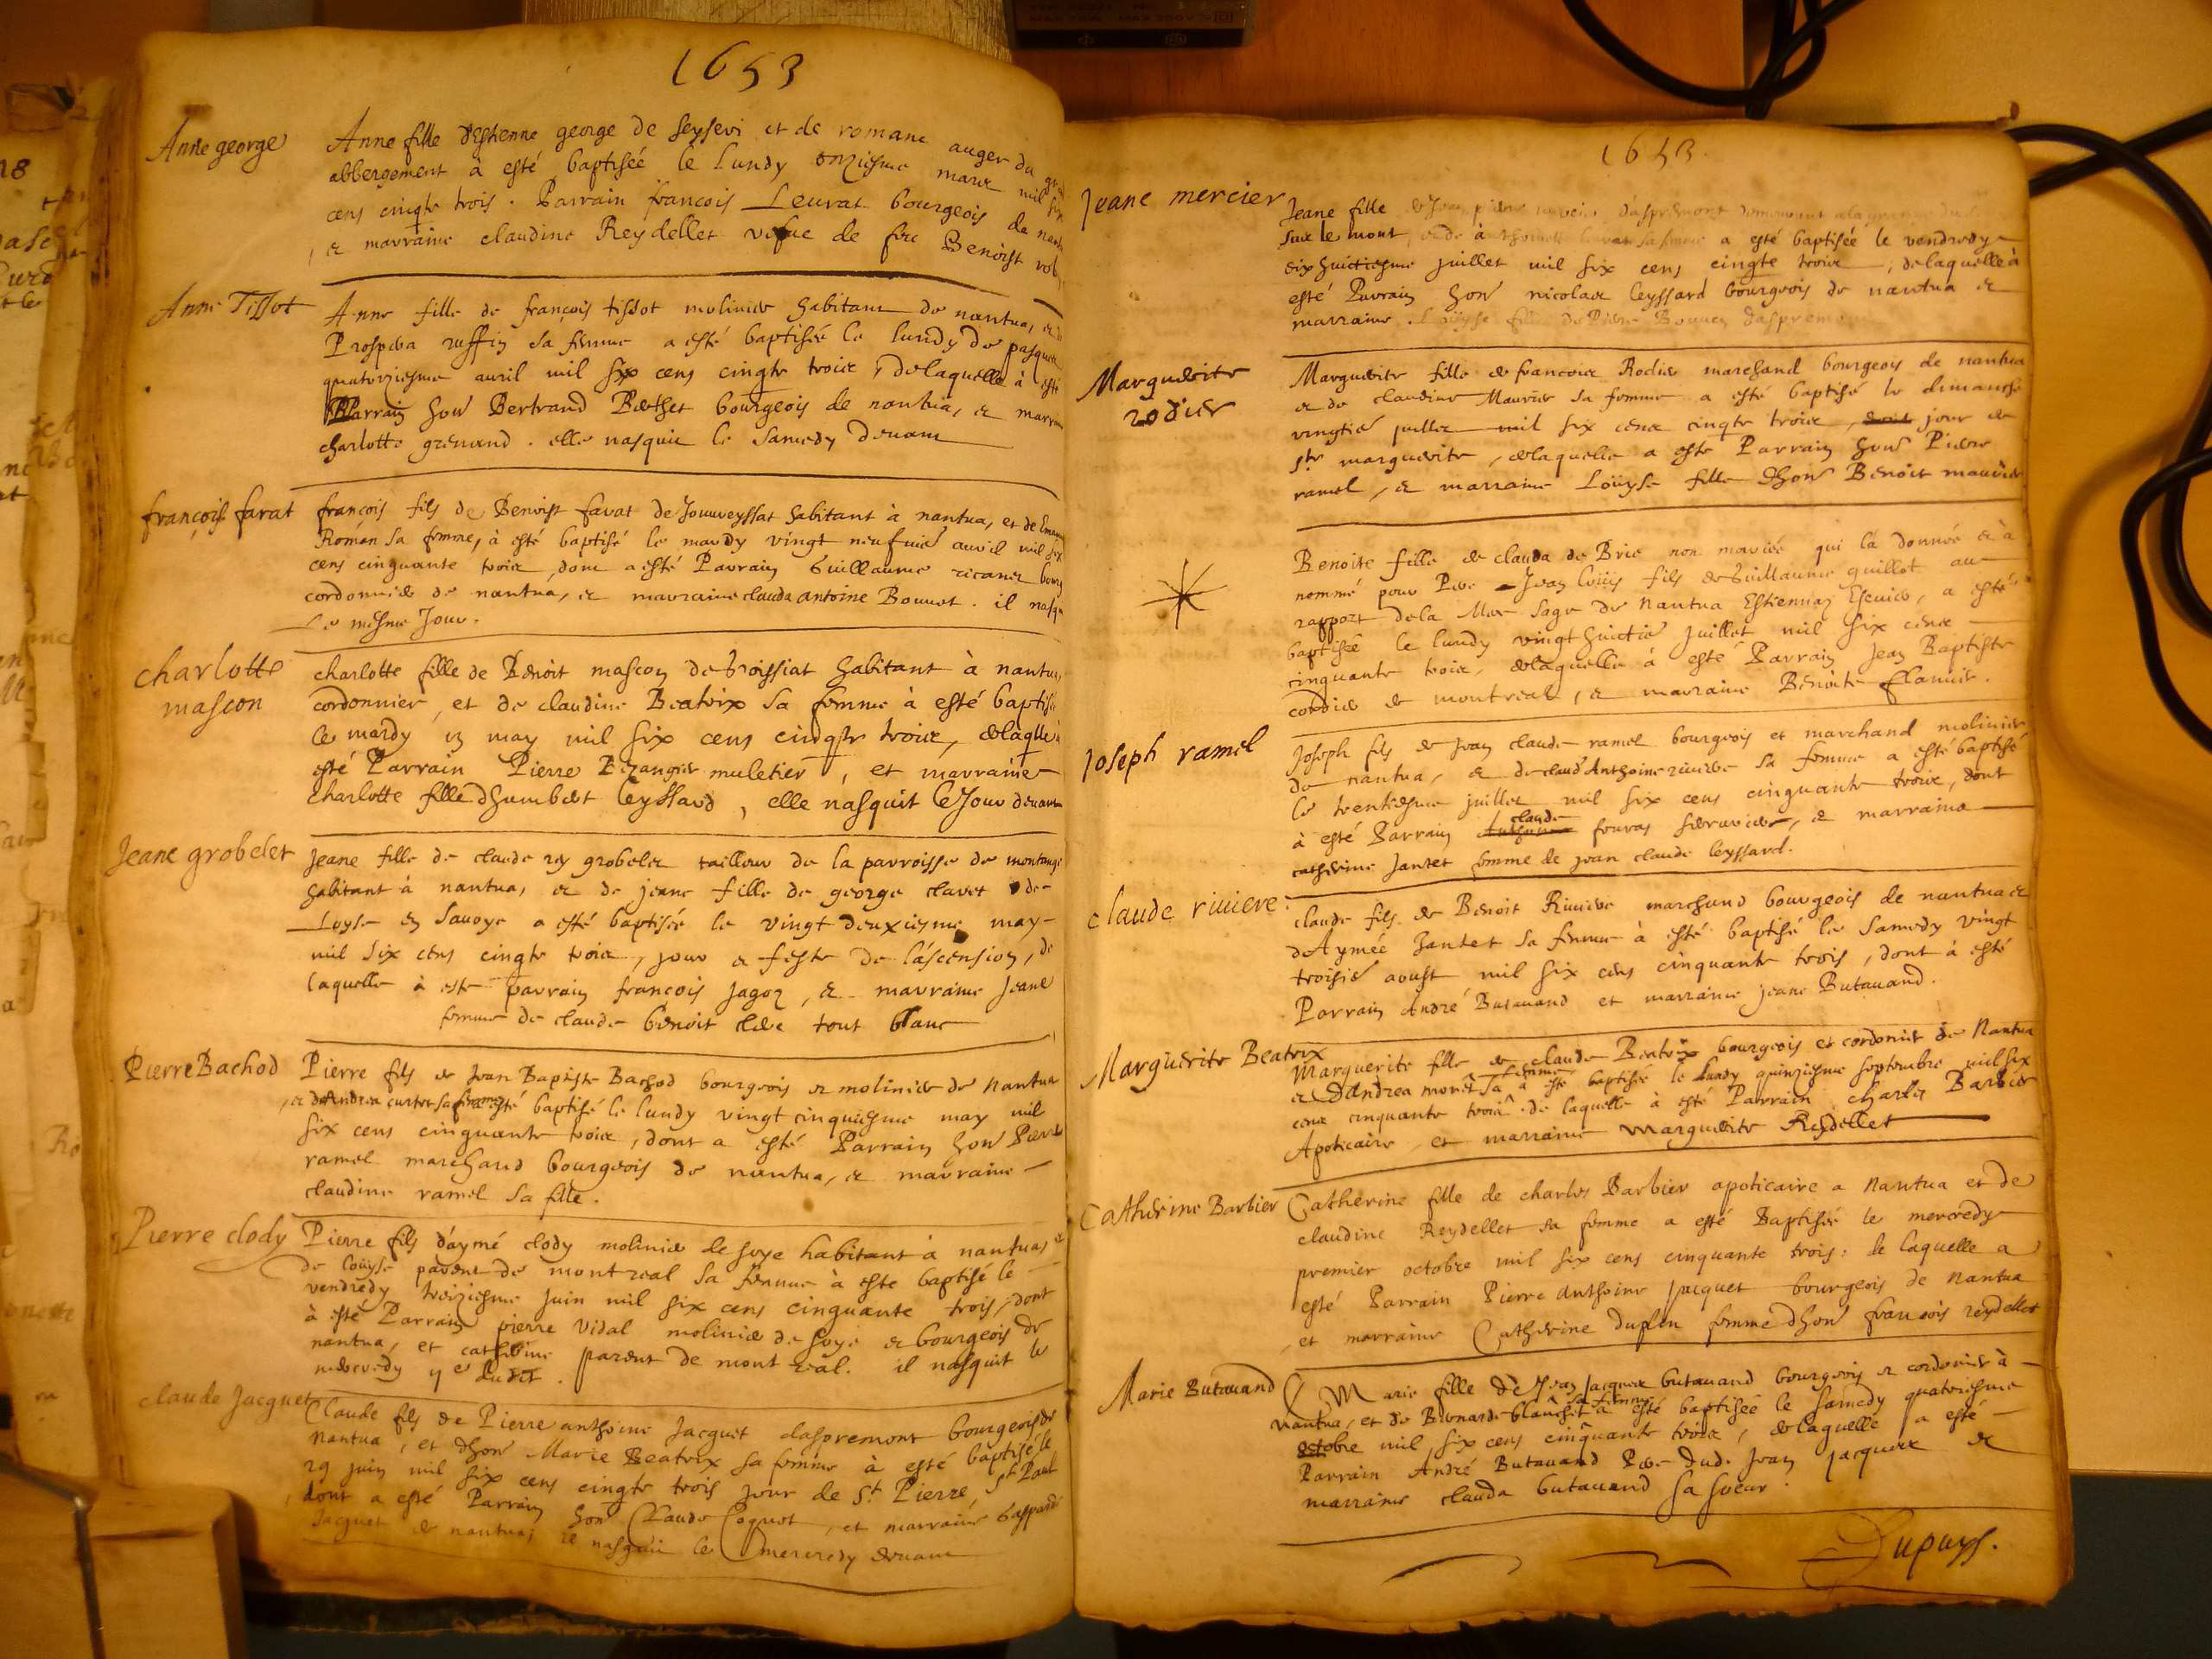 1653
Anne george
Anne fille d'Estienne george de seyseri et de romane auger du
abbergement à esté baptisée le lundy onziesme mars mil six
cens cinqte trois. Parrain francois Leurat bourgeois de
& marraine claudine Reydellet vefue de feu Benoist
Anne Tissot
Anne fille de françois tissot molinier habitant de nantua, &
Prospera ruffin sa femme a esté baptisée le lundy de pasques
quatorziesme auril mil six cens cinqte troix, de laquelle à esté
Parrain hoñ Bertrand Boethet bourgeois de nantua, &
charlotte grenand. elle nasquit le samedy deuant
françois farat
françois fils de Benoist farat de habitant à nantua, et de
Román sa femme, à esté baptisé le mardy vingt neufuie auril mil six
cens cinquante troix, dont a esté Parrain Guillaume
cordonnier de nantua, & marraine clauda antoine Bonnet. il
le mesme Jour.
charlotte
mascon
charlotte fille de Benoit mascon de Voissiat habitant à nantua,
cordonnier, et de claudine Beatrix sa femme à esté
le mardy may mil six cens cinqte troix, delaqlle à
esté Parrain Pierre muletier, et marraine
charlotte fille dhumbert leyssard, elle nasquit le Jour deuant
Jeane grobelet
Jeane fille de claude rey grobelet tailleur de la parroisse de
habitant à nantua, & de jeane fille de george clavet de
Loyse en Sauoye a esté baptisée le vingt deuxiesme may
mil six cens cinqte troix, jour & feste de l'ascension, de
laquelle à esté parrain francois jagoz, & marraine Jeane
femme de claude benoit clerc tout blanc
Pierre Bachod
Pierre fils de Jean Baptiste Bachod bourgeois & molinier de Nantua
& d'Andrea curtet sa femme esté baptisé le lundy vingt cinquiesme may mil
six cens cinquante troix, dont a esté Parrain hoñ Pierre
ramel marchand bourgeois de nantua, & marraine
claudine ramel sa fille.
Pierre clody
Pierre fils d'aymé clody molinier de soye habitant à nantua, &
de loüyse parent de montreal sa femme à esté baptisé le
vendredy treiziesme juin mil six cens cinquante trois, dont
à esté Parrain pierre Vidal molinier de soye & bourgeois de
nantua, et catherine parent de mont real. il nasquit le
mercredy dudit.
claude Jacquet
Claude fils de Pierre anthoine Jacquet daspremont bourgeois de
Nantua, et dhoñ Marie Beatrix sa femme à esté baptisé le
29 juin mil six cens cinqte trois jour de St Pierre, St Paul
dont a esté Parrain hoñ Claude Coquet, et marraine
Jacquet de nantua, il nasquit le mercredy deuant
1653
Jeane mercier
Jeane fille de Jean
sur le mont, a esté baptisée le vendredy
dixhuictiesme juillet mil six cens cinqte troix, de laquelle à
esté Parrain hoñ nicolas leyssard bourgeois de nantua &
marraine Loüyse fille de Pierre Bonnet daspremont
Marguerite
rodier
Marguerite fille de francoix Rodier marchand bourgeois de nantua
& de claudine Maurier sa femme a esté baptisé le dimanche
vingtie juillet mil six cens cinqte troix, jour de
ste marguerite, delaquelle a esté Parrain hoñ Pierre
ramel, & marraine Loüyse fille dhoñ Benoit maurier
Benoite fille de clauda de Brie non mariée qui la donnée & à
nommé pour Pere Jean loüis fils de Guillaume guillot au
rapport de la Mere sage de nantua Estiennaz, a esté
baptisée le lundy vingt huictie juillet mil six cens
cinquante troix, delaquelle à esté Parrain Jean Baptiste
cordier de montreal, & marraine Benoite flamier.
Joseph ramel
Joseph fils de jean claude ramel bourgeois et marchand molinier
de nantua, & de claud' Anthoine riuiere sa femme a esté baptisé
le trentiesme juillet mil six cens cinquante troix, dont
à esté Parrain claude fouras, & marraine
catherine Jantet femme de jean claude leyssard.
claude riuiere
claude fils de Benoit Riuiere marchand bourgeois de nantua &
d'Aymée Jantet sa femme à esté baptisé le samedy vingt
troisie aoust mil six cens cinquante trois, dont à esté
Parrain André Butauand et marraine jeane Butauand.
Marguerite Beatrix
Marguerite fille de claude Beatrix bourgeois et cordonier de Nantua
& d'Andrea monet sa femme à esté baptisée le lundy quinziesme septembre mil six
cens cinquante troix. de laquelle à esté Parrain charles Barbier
Apoticaire, et marraine Marguerite Reydellet
Catherine Barbier
Catherine fille de charles Barbier apoticaire a Nantua et de
claudine Reydellet sa femme a esté Baptisée le mercredy
premier octobre mil six cens cinquante trois: de laquelle a
esté Parrain Pierre Anthoine jacquet bourgeois de Nantua
et marraine Catherine duplen femme dhoñ francois reydellet
Marie Butauand
Marie fille de Jean Jacques butauand bourgeois & cordonier à
Nantua, et de Bernarde blanchet sa femme à esté baptisée le samedy quatriesme
octobre mil six cens cinquante troix, delaquelle a esté
Parrain André Butauand Pere dud. Jean Jacques &
marraine clauda butauand sa soeur.
Dupuys.